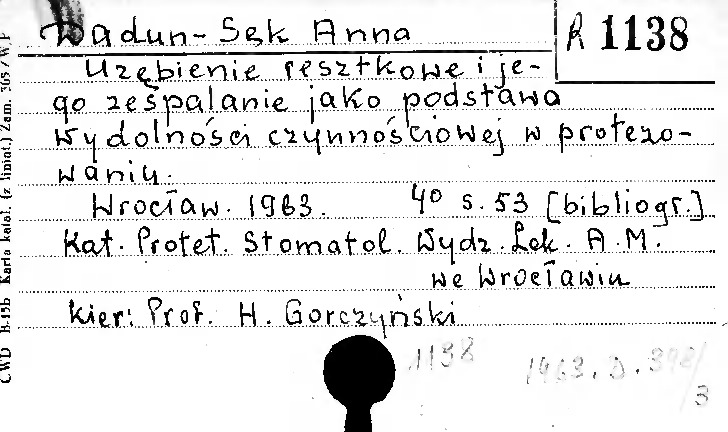 Wadun-Sęk Anna
R 1138
Uzębienie resztkowe i je-
go zespalanie jako podstawa
wydolności czynnościowej w protezo-
waniu.
Wrocław. 1963. 4º s. 53 [bibliogr.]
Kat. Protet. Stomatol. Wydz. Lek. A.M.
we Wrocławiu
Kier: Prof. H. Gorczyński
1138
1963. D. 398/
3
CWD B-15b Karta katal. (z liniat.) Zam. 305/W.P